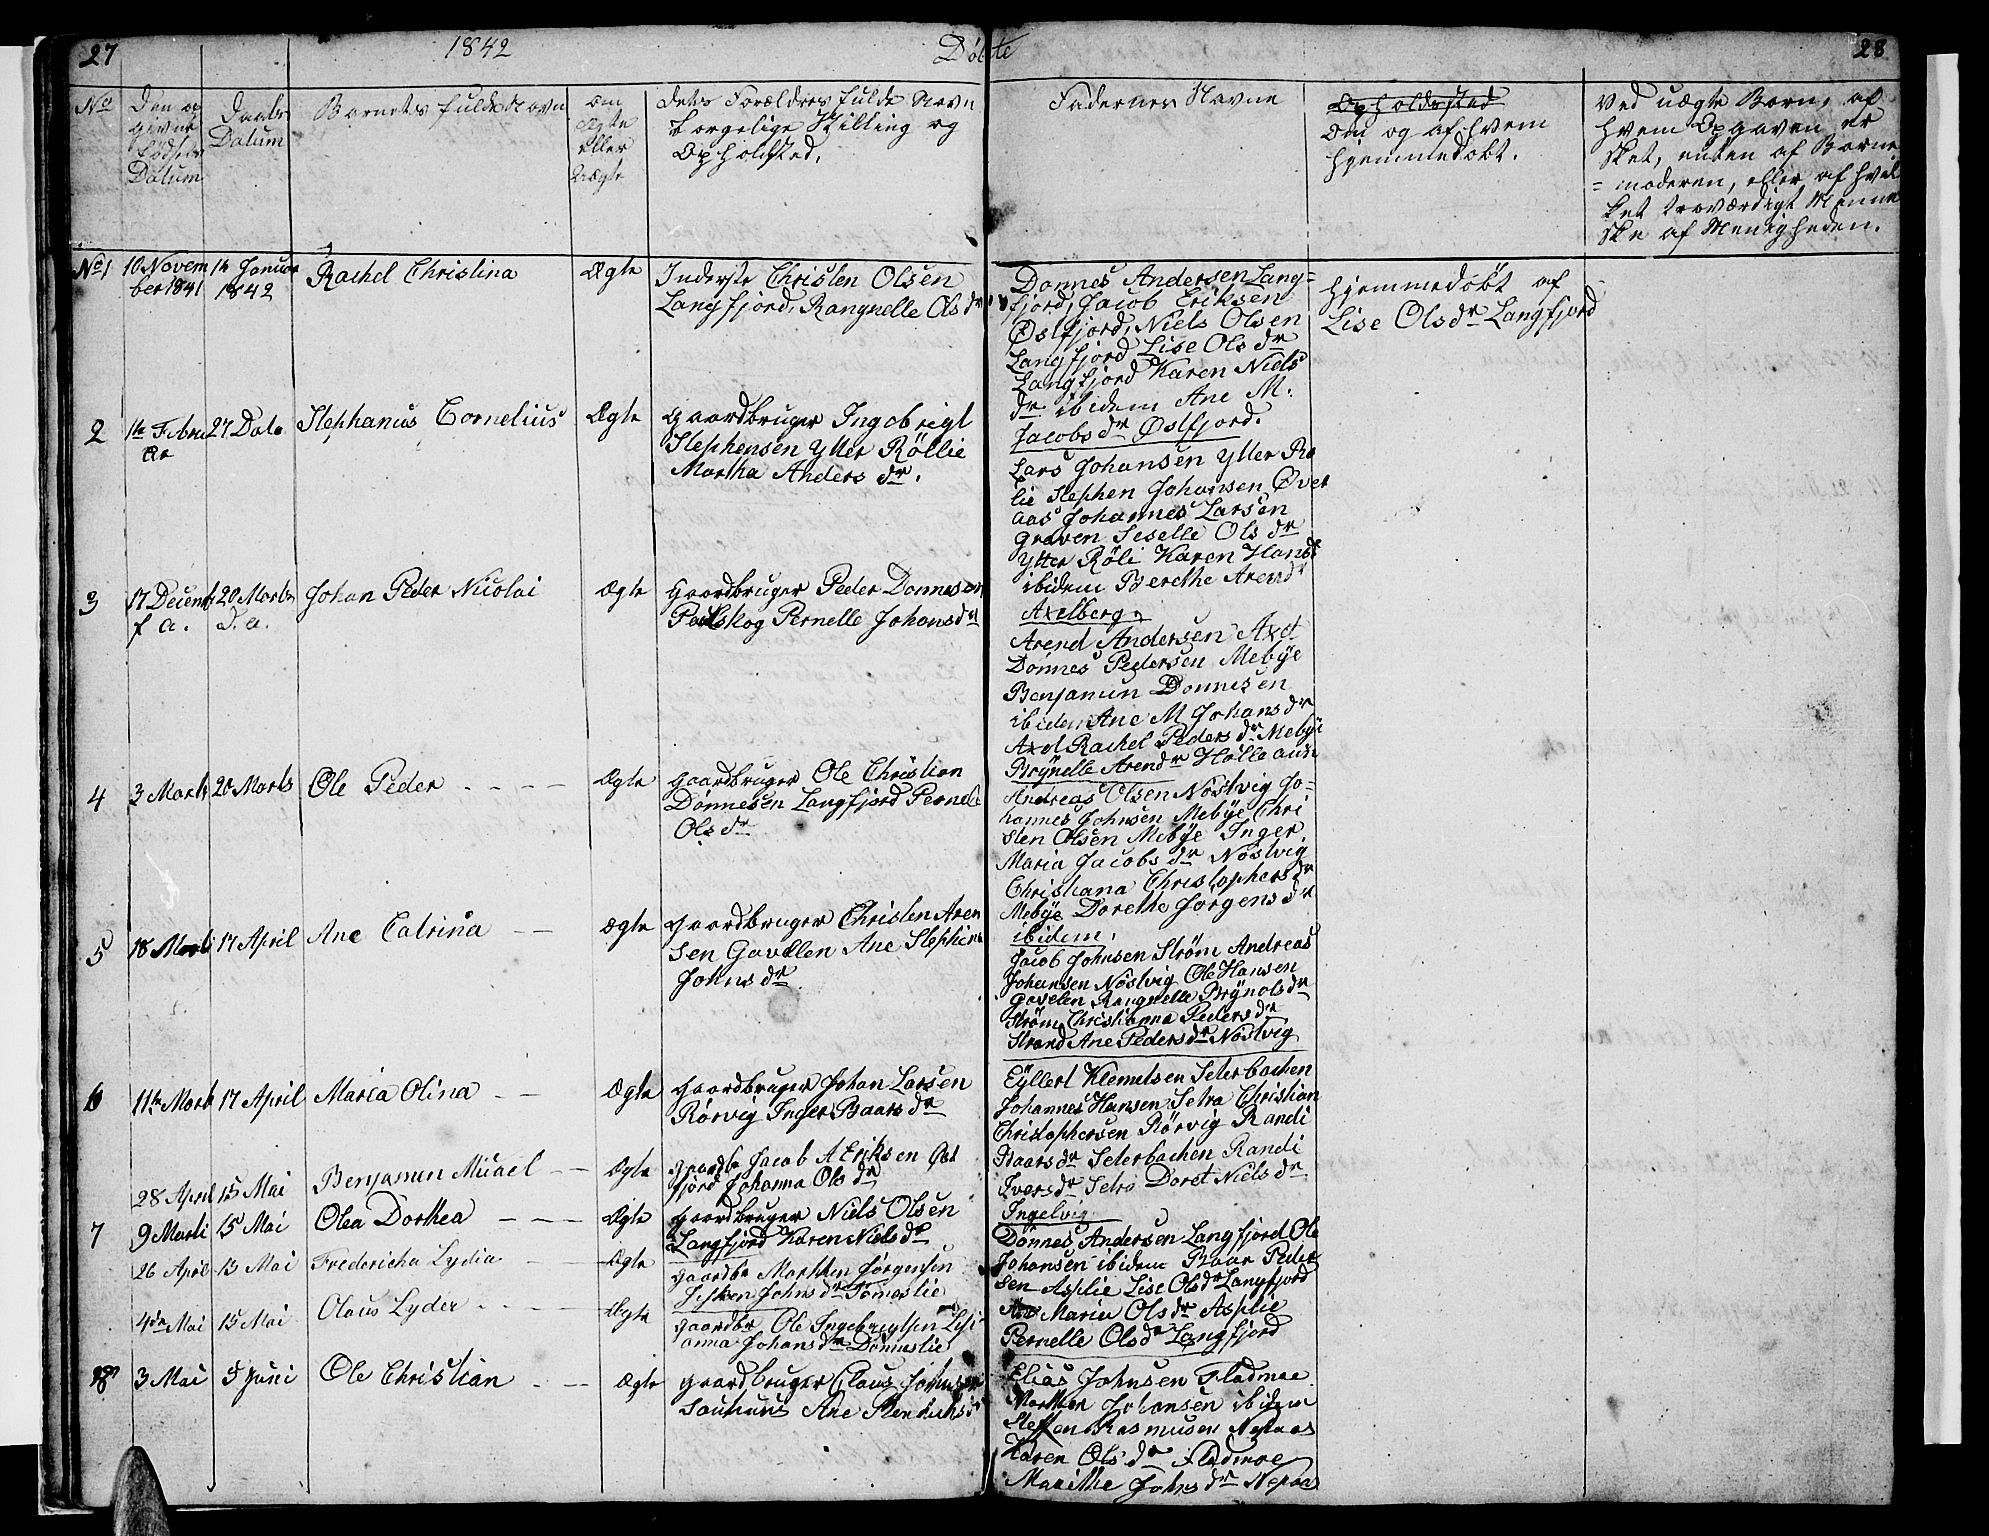 27
1842
Døbte
28
No
Den op
givne
Fødsels
Datum
Daabs
Datum
Barnets fulde Navn
Om
Ægte
eller
Uægte
Dets Forældres fulde Navn
borgelige Stilling og
Opholdsted.
Faddernes Navne
Opholdssted
Om og af hvem
hjemmedøbt.
Ved uægte Børn, af
hvem Opgaven er
sket, enten af Barne
= moderen, eller af hvil
ket troværdigt Menne
ske af Menigheden.
No 1
10 Novem
ber 1841
Januar
1842
Rachel Christina
Ægte
Inderste Christen Olsen
Langfjord, Rangnelle Ols dr
Donnes Andersen Lang=
fjord, Jacob Eriksen
Østfjord, Niels Olsen
Langfjord Lise Ols dr
Langfjord Karen Niels
dr ibidem Ane M.
Jacobs dr Østfjord.
hjemmedøbt af
Lise Ols dr Langfjord
2
27 Dato
Stephanus Cornelius
Ægte
Gaardbruger Ingebrigt
Stephensen Ytter Röllie
Martha Anders dr.
Lars Johansen Ytter Rø
lie Stephen Johansen Øver
aas Johannes Larsen
Graven Seselle Ols dr
Ytter Röli Karen Hans dr
ibidem Berethe Arend dr
Axelberg.
3
17 Decemb
f. a.
20 Marts
d. a.
Johan Peder Nicolai
Ægte
Gaardbruger Peder Donnesen
Pernelle Johans dr
Arend Andersen Axel
Dönnes Pedersen Mebÿe
Benjamin Donnesen
ibidem Ane M Johans dr
Axel Rachel Peders dr Mebÿe
Brÿnelle Arend dr
4
3 Marts
20 Marts
Ole Peder
Ægte
Gaardbruger Ole Christian
Dönnesen Langfjord Pernele
Ols dr
Andreas Olsen Nöstvig Jo=
hannes Johnsen Mebÿe Chri
sten Olsen Mebÿe Inger
Maria Jacobs dr Nöstvig
Christiana Christophers dr
Mebÿe Dorethe Jörgens dr
ibidem.
5
18 Marts
17 April
Ane Catrina
Ægte
Gaardbruger Christen Aren
sen Gavelen Ane Stephina
Johns dr
Jacob Johnsen Strøm Andreas
Johansen Nöstvig Ole Hansen
Gavelen Rangnelle Brÿnols dr
Strøm Christianna Peders dr
Strand Ane Peders dr Nöstvig
6
11te Marts
17 April
Maria Olina
Ægte
Gaardbruger Johan Larsen
Rörvig Inger Baars dr
Eÿllert Klemetsen Seterbachen
Johannes Hansen Setra Christian
Christophersen Rörvig Randi
Baars dr Seterbachen Randi
Ivers dr Setra Doret Niels dr
Ingelvig
28 April
15 Mai
Benjamin Micael
Ægte
Gaardbr Jacob A Eriksen Øst
fjord Johanna Ols dr
7
9 Marts
15 Mai
Olea Dorthea
Ægte
Gaardbruger Niels Olsen
Langfjord Karen Niels dr
Dönnes Andersen Langfjord Ole
Johansen ibidem Baar Peder
sen Asplie Lise Ols dr Langfjord
Maria Ols dr Asplie
Pernelle Ols dr Langfjord
26 April
15 Mai
Fredericha Lydia
Ægte
Gaardbr Morthen Jörgensen
Johns dr
4de Mai
15 Mai
Olaus Lyder
Ægte
Gaardbr Ole Ingebrigtsen
anna Johans dr
8
3 Mai
5 Juni
Ole Christian
Ægte
Gaardbruger Claus Johnsen
Ane
Elias Johnsen Fladmoe
Morthen Johansen ibidem
Steffen Rasmusen Nepaas
Karen Ols dr Fladmoe
Marithe Johns dr Nepaas